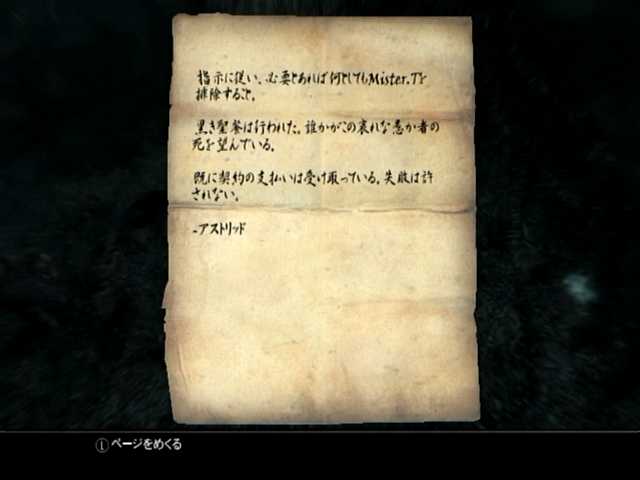 指示に従い、必要とあれば何としてもMister.Tを
排除すること。
黒き聖餐は行われた。誰かがこの哀れな愚か者の
死を望んでいる。
既に契約の支払いは受け取っている。失敗は許
されない。
-アストリッド
ページをめくる